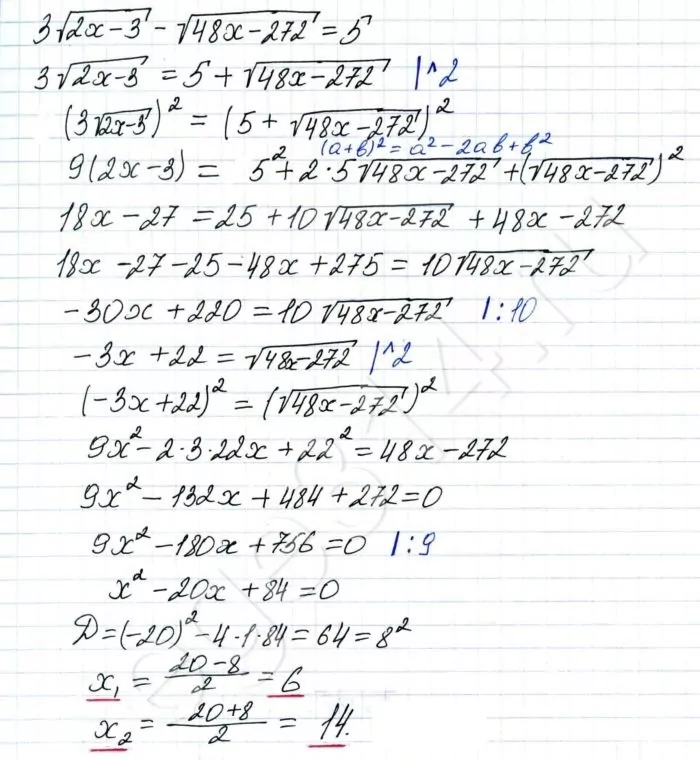 3√(2x-3) - √(48x-272) = 5
3√(2x-3) = 5 + √(48x-272) |^2
(3√(2x-3))² = (5 + √(48x-272))²
(a+b)² = a² - 2ab + b²
9(2x-3) = 5² + 2·5√(48x-272) + (√(48x-272))²
18x - 27 = 25 + 10√(48x-272) + 48x - 272
18x - 27 - 25 - 48x + 275 = 10√(48x-272)
-30x + 220 = 10√(48x-272) |:10
-3x + 22 = √(48x-272) |^2
(-3x+22)² = (√(48x-272))²
9x² - 2·3·22x + 22² = 48x - 272
9x² - 132x + 484 + 272 = 0
9x² - 180x + 756 = 0 |:9
x² - 20x + 84 = 0
D = (-20)² - 4·1·84 = 64 = 8²
x₁ = (20-8)/2 = 6
x₂ = (20+8)/2 = 14.